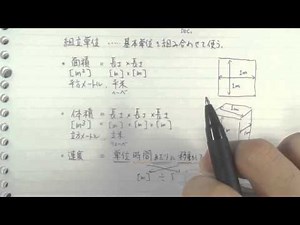 組立単位 …… 基本単位を組み合わせて使う。
・面積 = 長さ × 長さ
[m²] [m] × [m]
平方メートル
1m
1m
・体積 = 長さ × 長さ × 長さ
[m³] [m] × [m] × [m]
立方メートル
1m
・速度 = 単位時間あたりに
[m] ÷